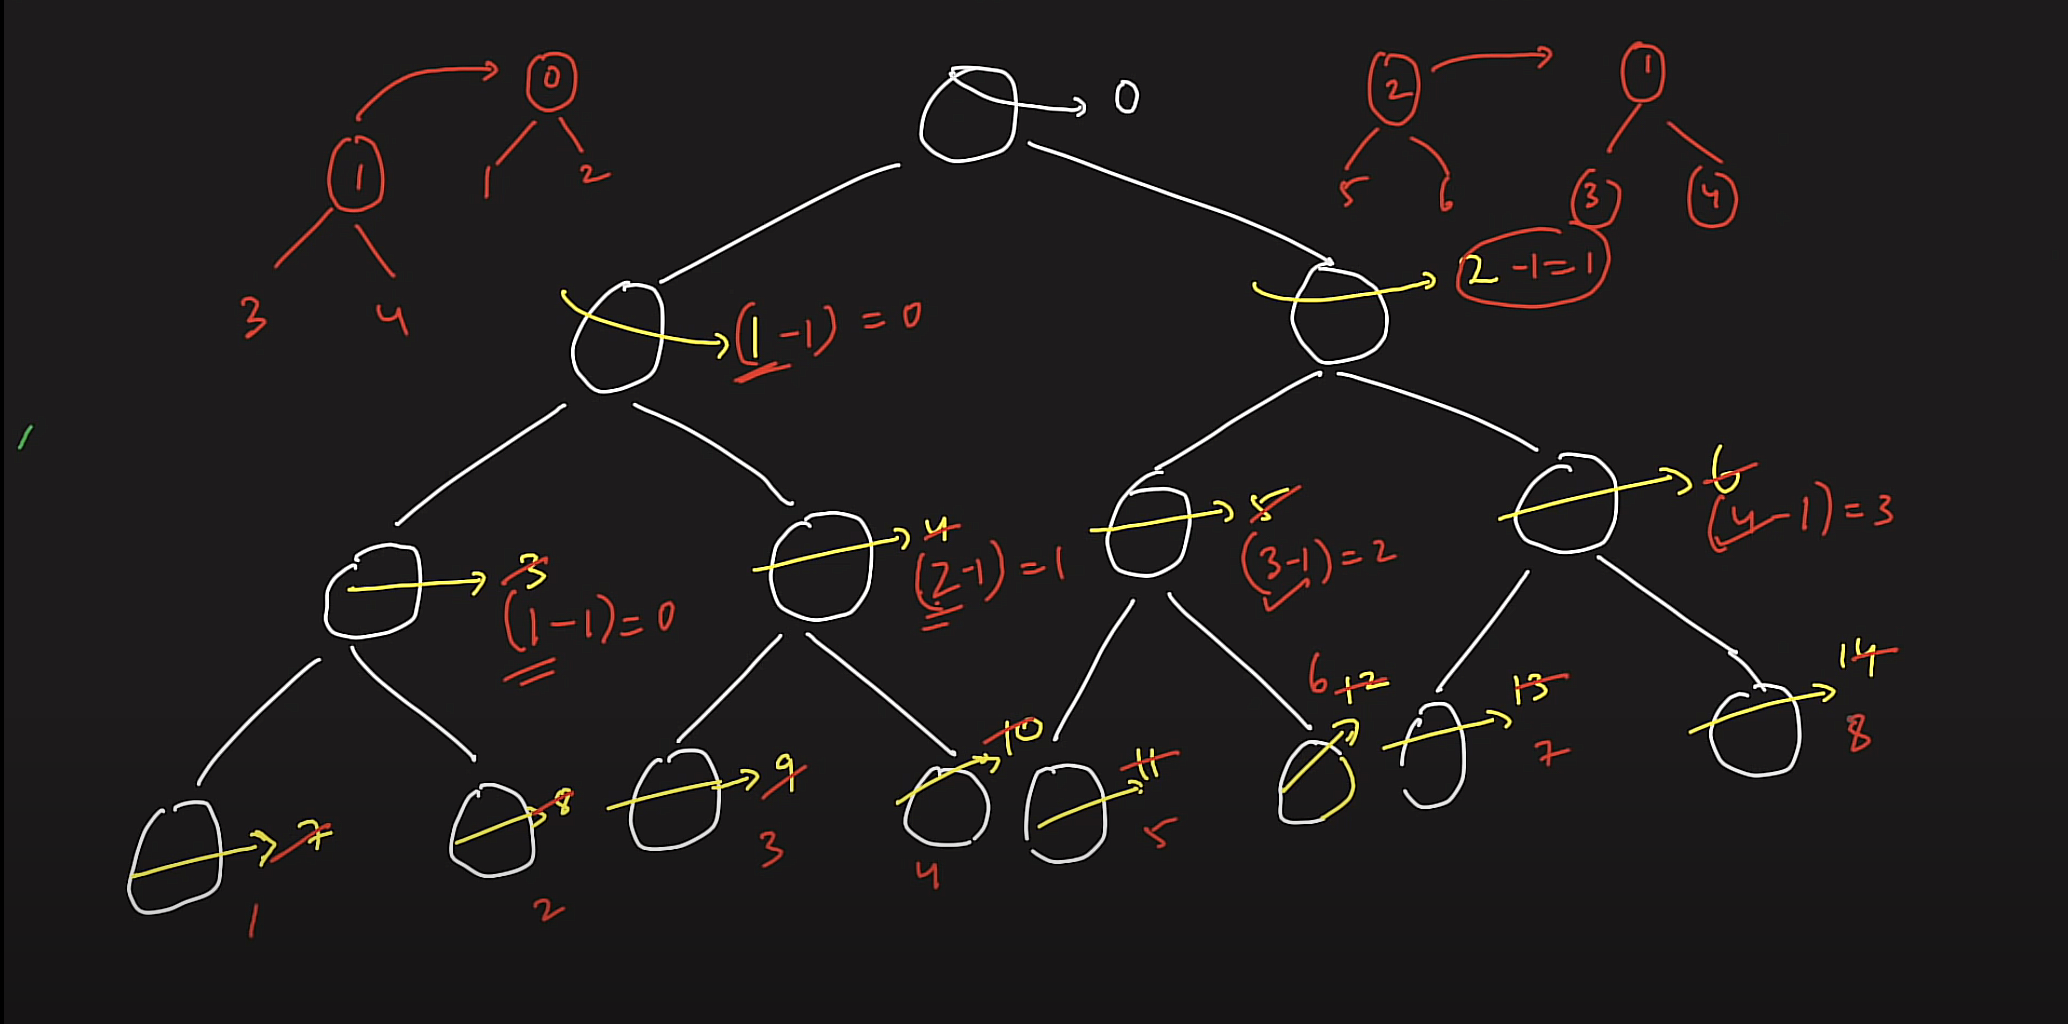 0
1 2
1
3 4
0
2
5 6
1
3 4
(1-1) = 0
2 -1 = 1
3
(1-1) = 0
4
(2-1) = 1
5
(3-1) = 2
6
(4-1) = 3
7
1
8
2
9
3
10
4
11
5
12
6
13
7
14
8